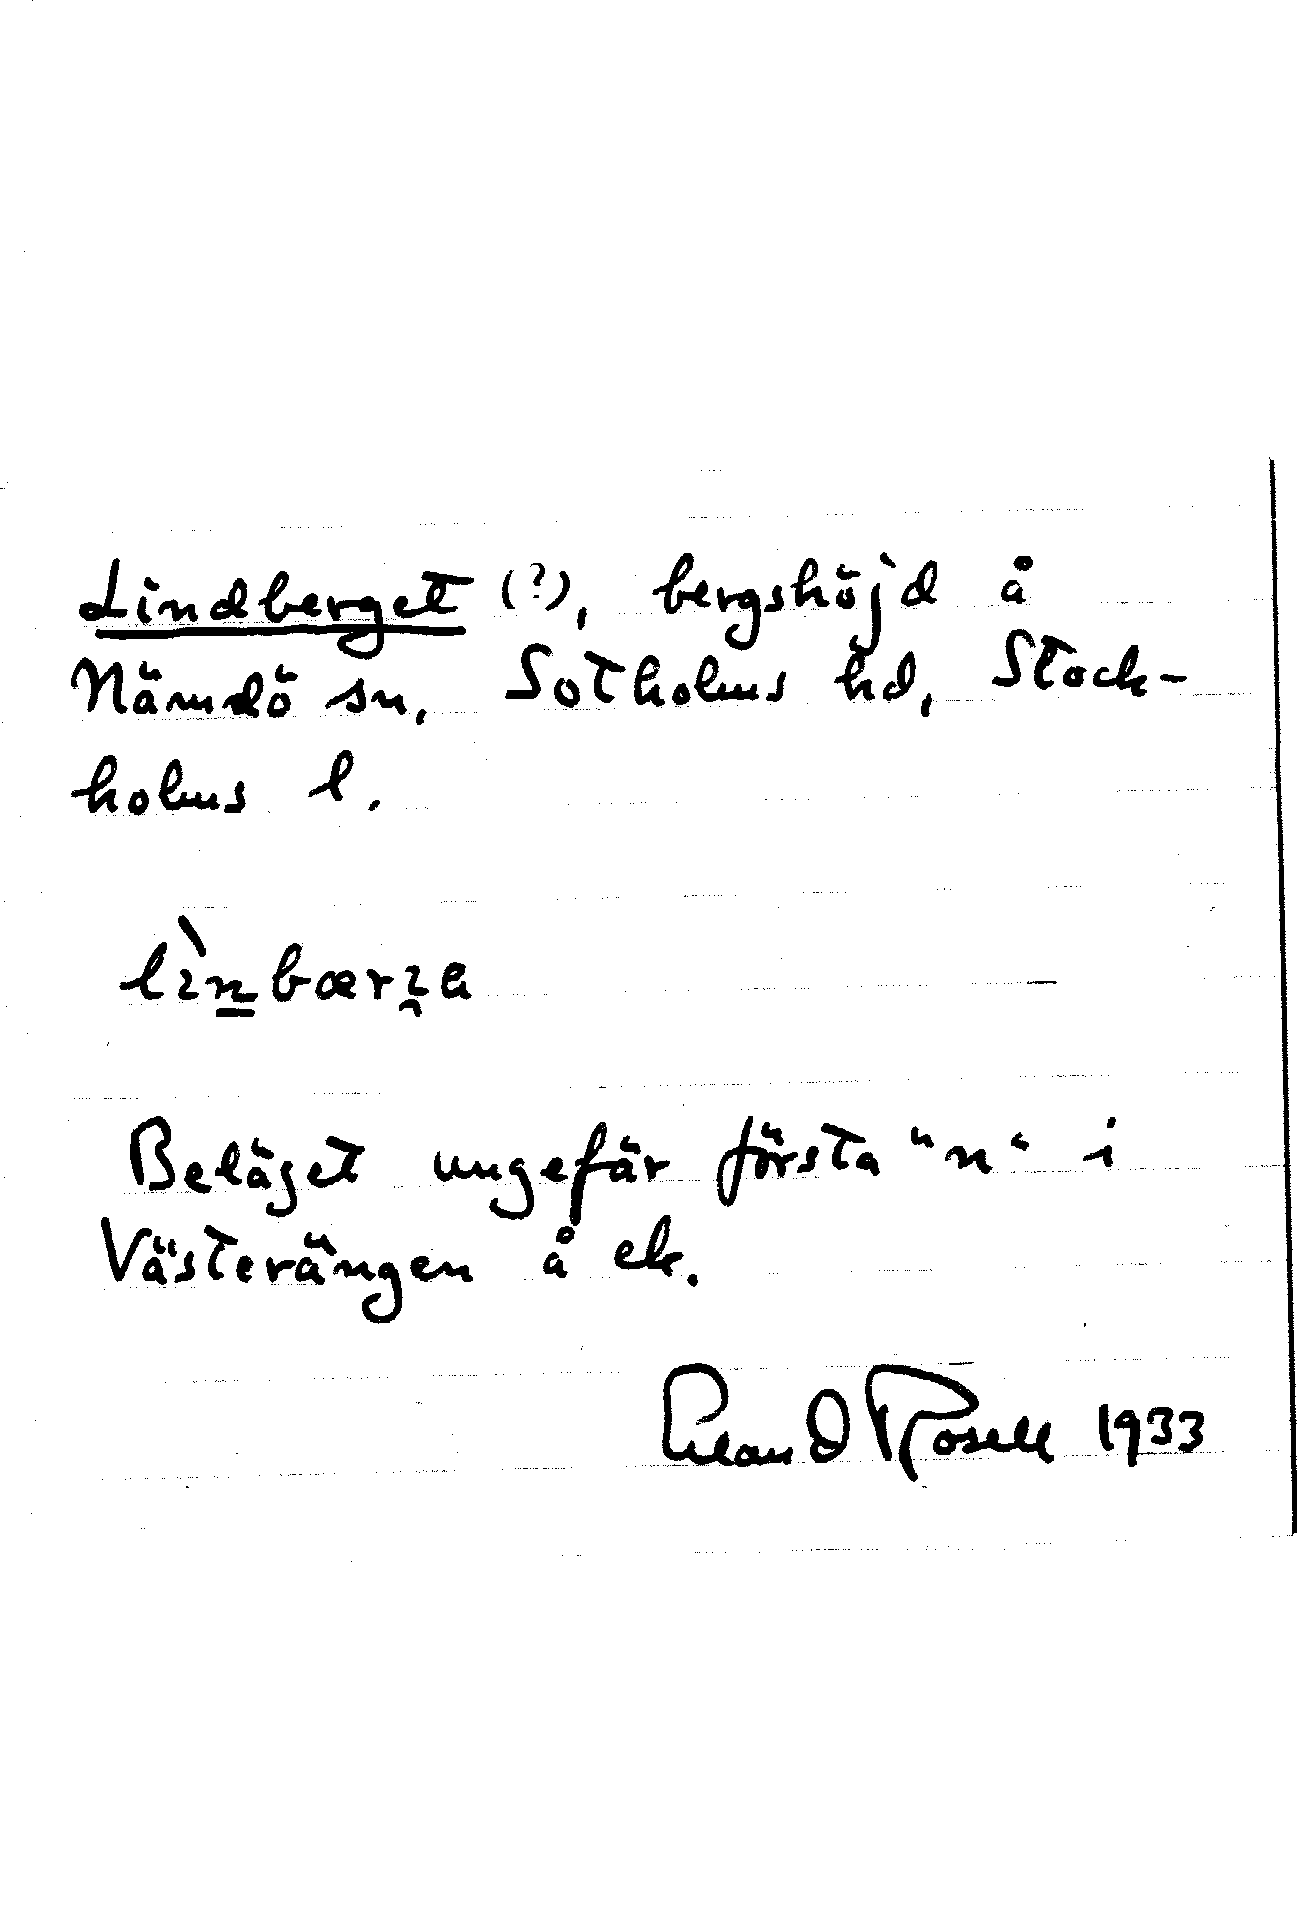 Lindberget (?), bergshöjd å
Nämdö sn, Sotholms hd, Stock-
holms l.
Beläget ungefär första "n" i
Västerängen å ek.
Rosell 1933